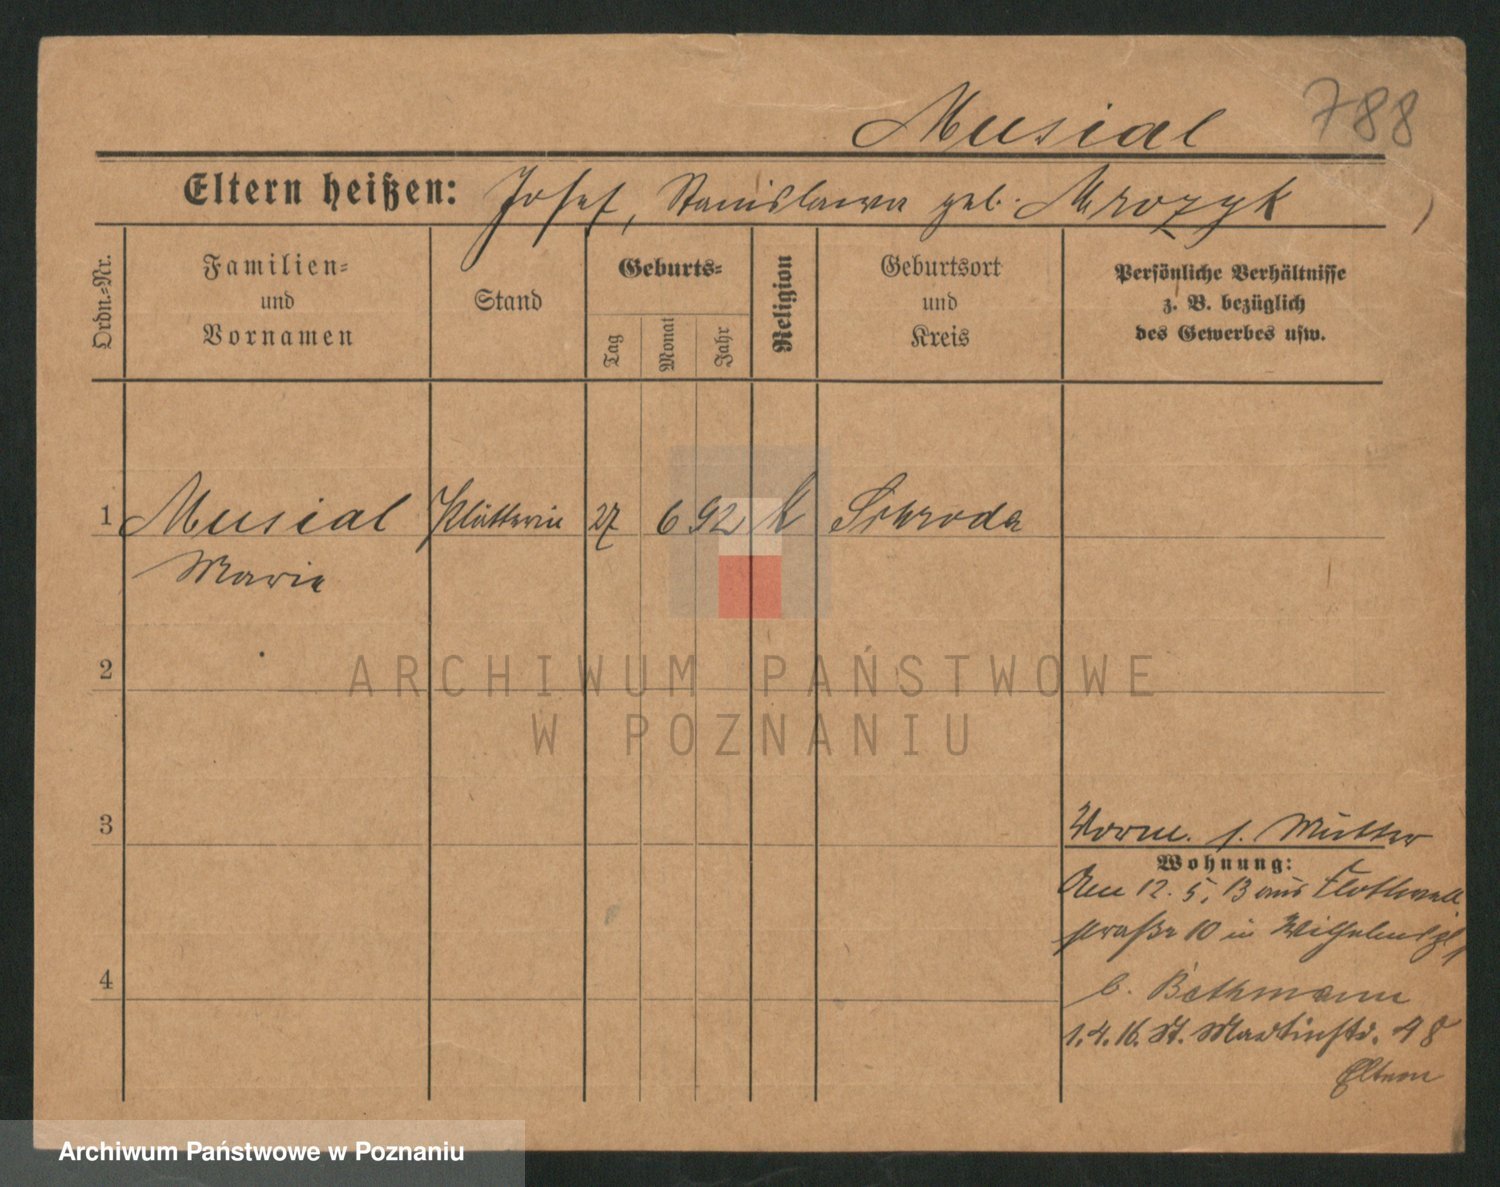 Musial 788
Eltern heißen: Josef, Stanislawa geb. Mrozyk
Ordn.-Nr.
Familien-
und
Vornamen
Stand
Geburts-
Tag
Monat
Jahr
Religion
Geburtsort
und
Kreis
Persönliche Verhältnisse
z. B. bezüglich
des Gewerbes usw.
1 Musial Plätterin 27 6 92 k Schroda
Marie
2
3
4
Vorm. s. Mutter
Wohnung:
Am 12. 5. 13 aus Flottwell
straße 10 in Wilhelmspl
b. Bethmann
1.4.16. St. Martinstr. 48
Eltern
ARCHIWUM PAŃSTWOWE
W POZNANIU
Archiwum Państwowe w Poznaniu